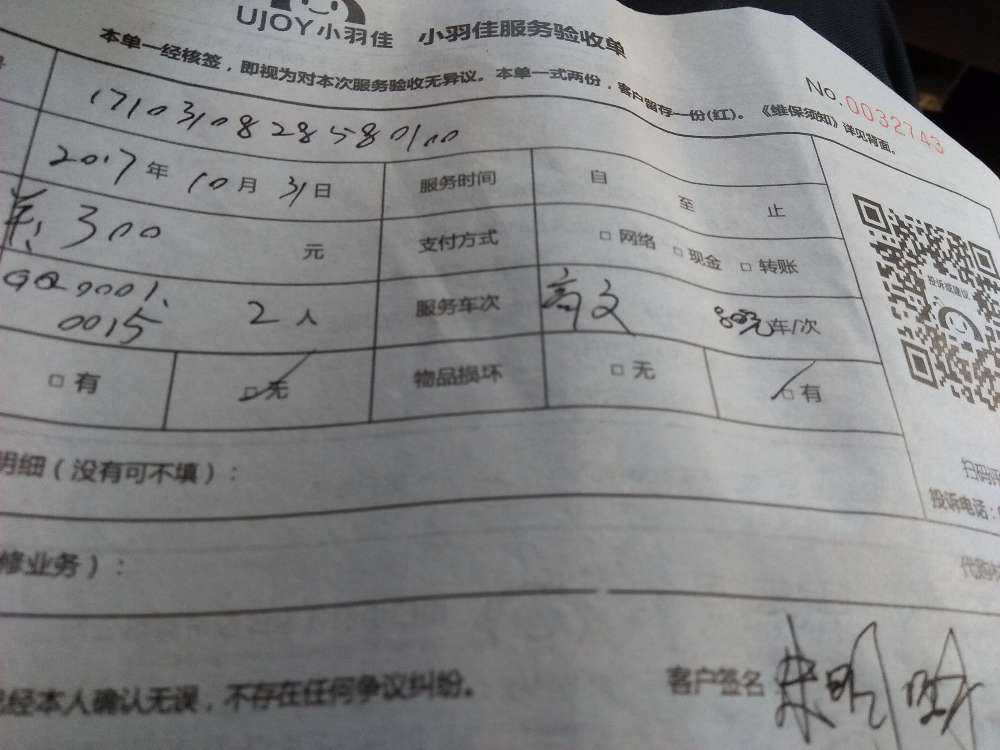 UJOY小羽佳 小羽佳服务验收单
本单一经核签，即视为对本次服务验收无异议。本单一式两份，客户留存一份(红)。《维保须知》详见背面。
No.0032743
1710310828580100
2017年 10月 31日 服务时间 自 至 止
300 元 支付方式 □ 网络 □ 现金 □ 转账
0015 2人 服务车次 车/次
□ 有 □ 无 物品损坏 □ 无 □ 有
投诉或建议
明细（没有可不填）：
投诉电话：
修业务）：
已经本人确认无误，不存在任何争议纠纷。
客户签名